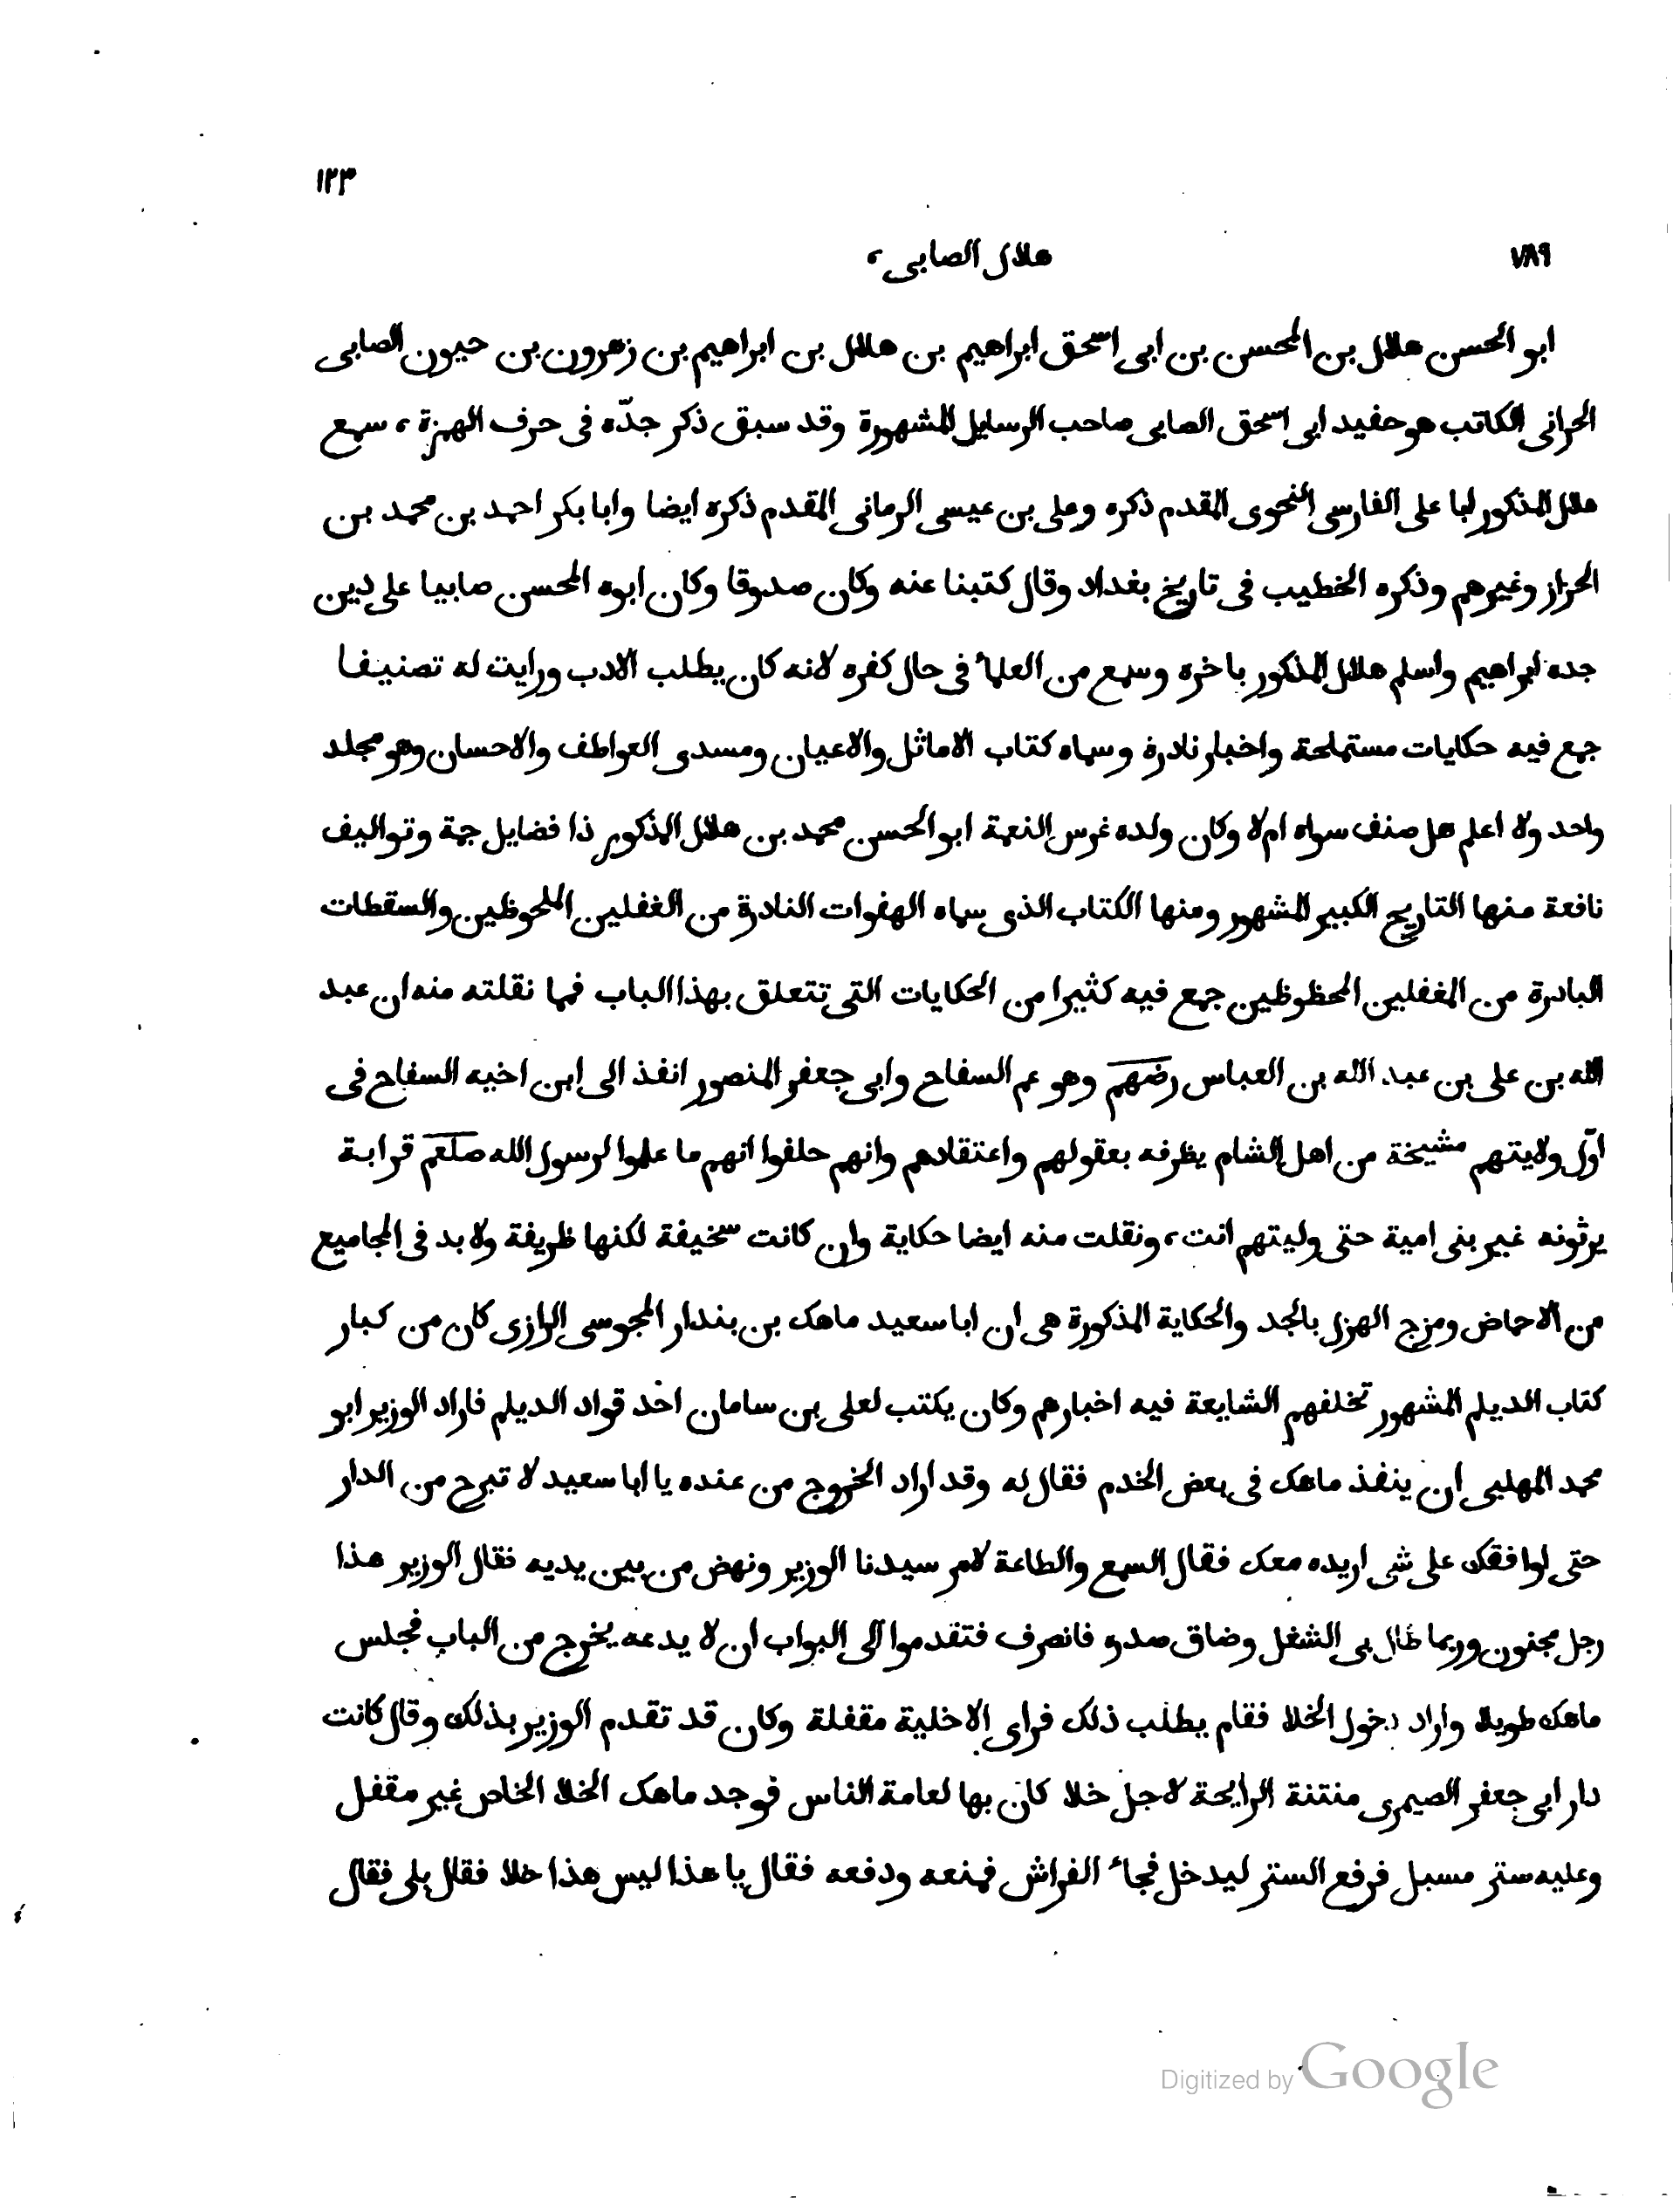 ١٢٣
٧٨٩ هلال الصابى،
ابو الحسن هلال بن المحسن بن ابى اسحق ابراهيم بن هلال بن ابراهيم بن زهرون بن حيون الصابى
الحرانى الكاتب هو حفيد ابى اسحق الصابى صاحب الرسايل المشهورة وقد سبق ذكر جدّه فى حرف الهمزة، سمع
هلال المذكور ابا على الفارسى النحوى المقدم ذكره وعلى بن عيسى الرمانى المقدم ذكره ايضا وابا بكر احمد بن محمد بن
الحراز وغيرهم وذكره الخطيب فى تاريخ بغداد وقال كتبنا عنه وكان صدوقا وكان ابوه المحسن صابيا على دين
جده ابراهيم واسلم هلال المذكور باخره وسمع من العلماء فى حال كفره لانه كان يطلب الادب ورايت له تصنيفا
جمع فيه حكايات مستملحة واخبار نادرة وسماه كتاب الاماثل والاعيان ومسدى العواطف والاحسان وهو مجلد
واحد ولا اعلم هل صنف سواه ام لا وكان ولده غرس النعمة ابو الحسن محمد بن هلال المذكور ذا فضايل جمة وتواليف
نافعة منها التاريخ الكبير المشهور ومنها الكتاب الذى سماه الهفوات النادرة من الغفلين الملحوظين والسقطات
البادرة من المغفلين المحظوظين جمع فيه كثيرا من الحكايات التى تتعلق بهذا الباب فمما نقلته منه ان عبد
الله بن على بن عبد الله بن العباس رضهم وهو عم السفاح وابى جعفر المنصور انفذ الى ابن اخيه السفاح فى
اوّل ولايتهم مشيخة من اهل الشام يظرفه بعقولهم واعتقادهم وانهم حلفوا انهم ما علموا لرسول الله صلعم قرابة
يرثونه غير بنى امية حتى وليتهم انت، ونقلت منه ايضا حكاية وان كانت سخيفة لكنها ظريفة ولا بد فى المجاميع
من الاحماض ومزج الهزل بالجد والحكاية المذكورة هى ان ابا سعيد ماهك بن بندار المجوسى الرازى كان من كبار
كتاب الديلم المشهور تخلفهم الشايعة فيه اخبارهم وكان يكتب لعلى بن سامان احد قواد الديلم فاراد الوزير ابو
محمد المهلبى ان ينفذ ماهك فى بعض الخدم فقال له وقد اراد الخروج من عنده يا ابا سعيد لا تبرح من الدار
حتى اوافقك على شى اريده معك فقال السمع والطاعة لامر سيدنا الوزير ونهض من بين يديه فقال الوزير هذا
رجل مجنون وربما طال بى الشغل وضاق صدره فانصرف فتقدموا الى البواب ان لا يدعه يخرج من الباب فجلس
ماهك طويلا واراد دخول الخلا فقام يطلب ذلك فراى الاخلية مقفلة وكان قد تقدم الوزير بذلك وقال كانت
دار ابى جعفر الصيمرى منتنة الرايحة لاجل خلا كان بها لعامة الناس فوجد ماهك الخلا الخاص غير مقفل
وعليه ستر مسبل فرفع الستر ليدخل فجاء الفراش فمنعه ودفعه فقال يا هذا ليس هذا خلا فقال بلى فقال
Digitized by Google